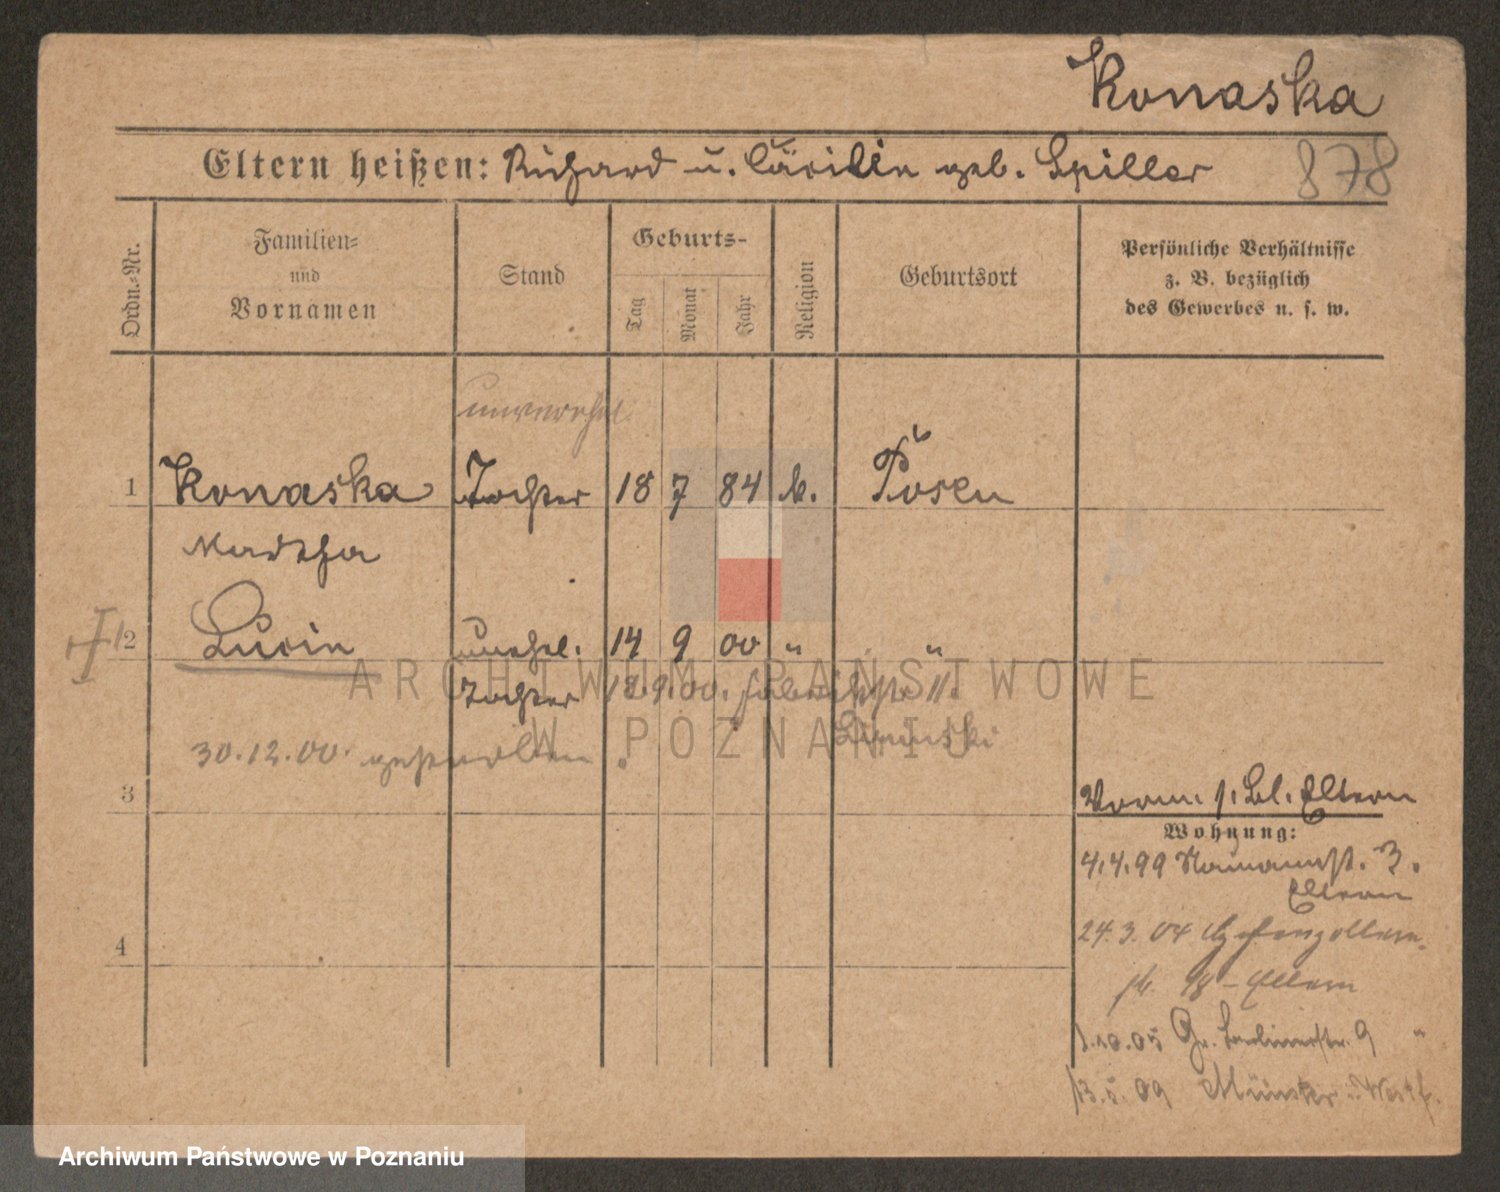 Konaska
Eltern heißen: Richard u. Cäcilie geb. Spiller 878
Ordn.-Nr.
Familien-
und
Vornamen
Stand
Geburts-
Tag
Monat
Jahr
Religion
Geburtsort
Persönliche Verhältnisse
z. B. bezüglich
des Gewerbes u. s. w.
unverehel.
1 Konaska Tochter 18 7 84 k. Posen
Martha
2 Lucie unehel. 14 9 00 " "
Tochter 18.9.00.
30.12.00. gestorben.
3
Vorm. s. Bl. Eltern
Wohnung:
4.4.99 Naumannst. 3.
Eltern
24.3.04 Hohenzollern
str. 18 - Eltern
4
1.10.05 Gr. Berlinerstr. 9 "
13.5.09 Münster i. Westf.
ARCHIWUM PAŃSTWOWE
W POZNANIU
Archiwum Państwowe w Poznaniu